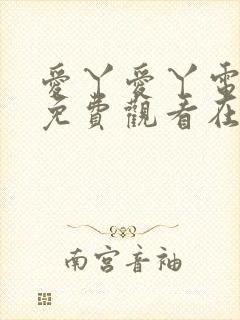 愛丫愛丫電
免費觀看在
南宮音袖